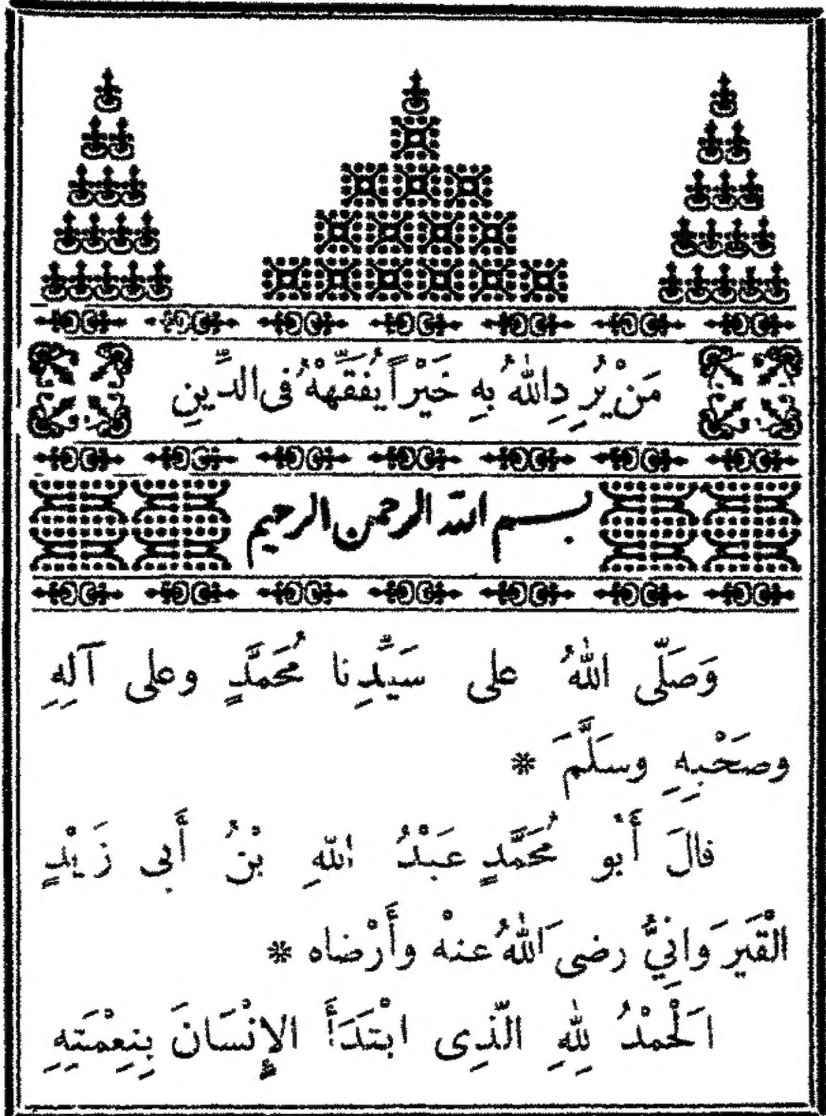 مَنْ يُرِدِ اللهُ بِهِ خَيْراً يُفَقِّهْهُ فى الدِّينِ
بسم الله الرحمن الرحيم
وَصَلَّى اللهُ على سَيِّدِنا مُحَمَّدٍ وعلى آلِهِ
وصَحْبِهِ وسَلَّمَ *
قالَ أَبُو مُحَمَّدٍ عَبْدُ اللهِ بْنُ أَبى زَيْدٍ
الْقَيْرَوانِيُّ رضى اللهُ عنْه وأَرْضاه *
اَلْحَمْدُ لِلهِ الَّذِى ابْتَدَأَ الإِنْسَانَ بِنِعْمَتِهِ